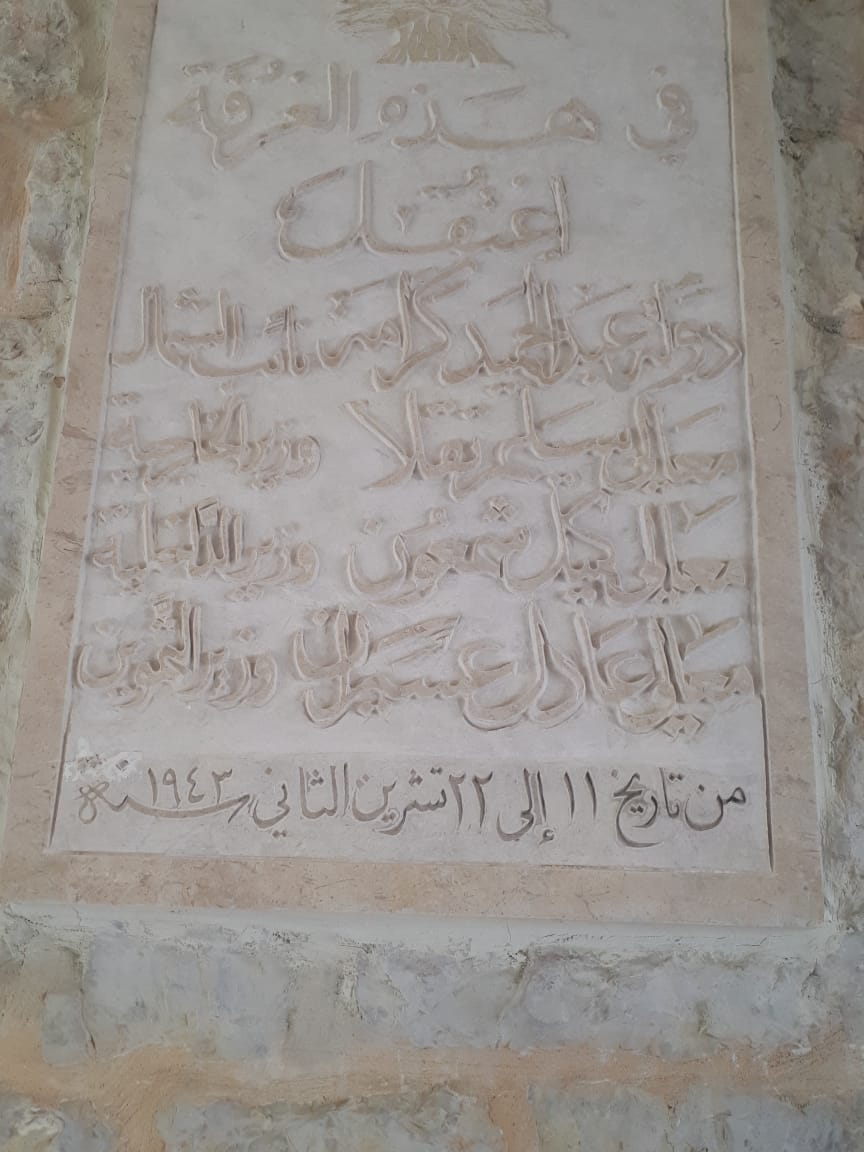 في هذه الغرفة
إعتقل
دولة عبد الحميد كرامة نائب الشمال
معالي سليم تقلا وزير الخارجية
معالي كميل شمعون وزير الداخلية
معالي عادل عسيران وزير التموين
من تاريخ ١١ إلى ٢٢ تشرين الثاني سنة ١٩٤٣